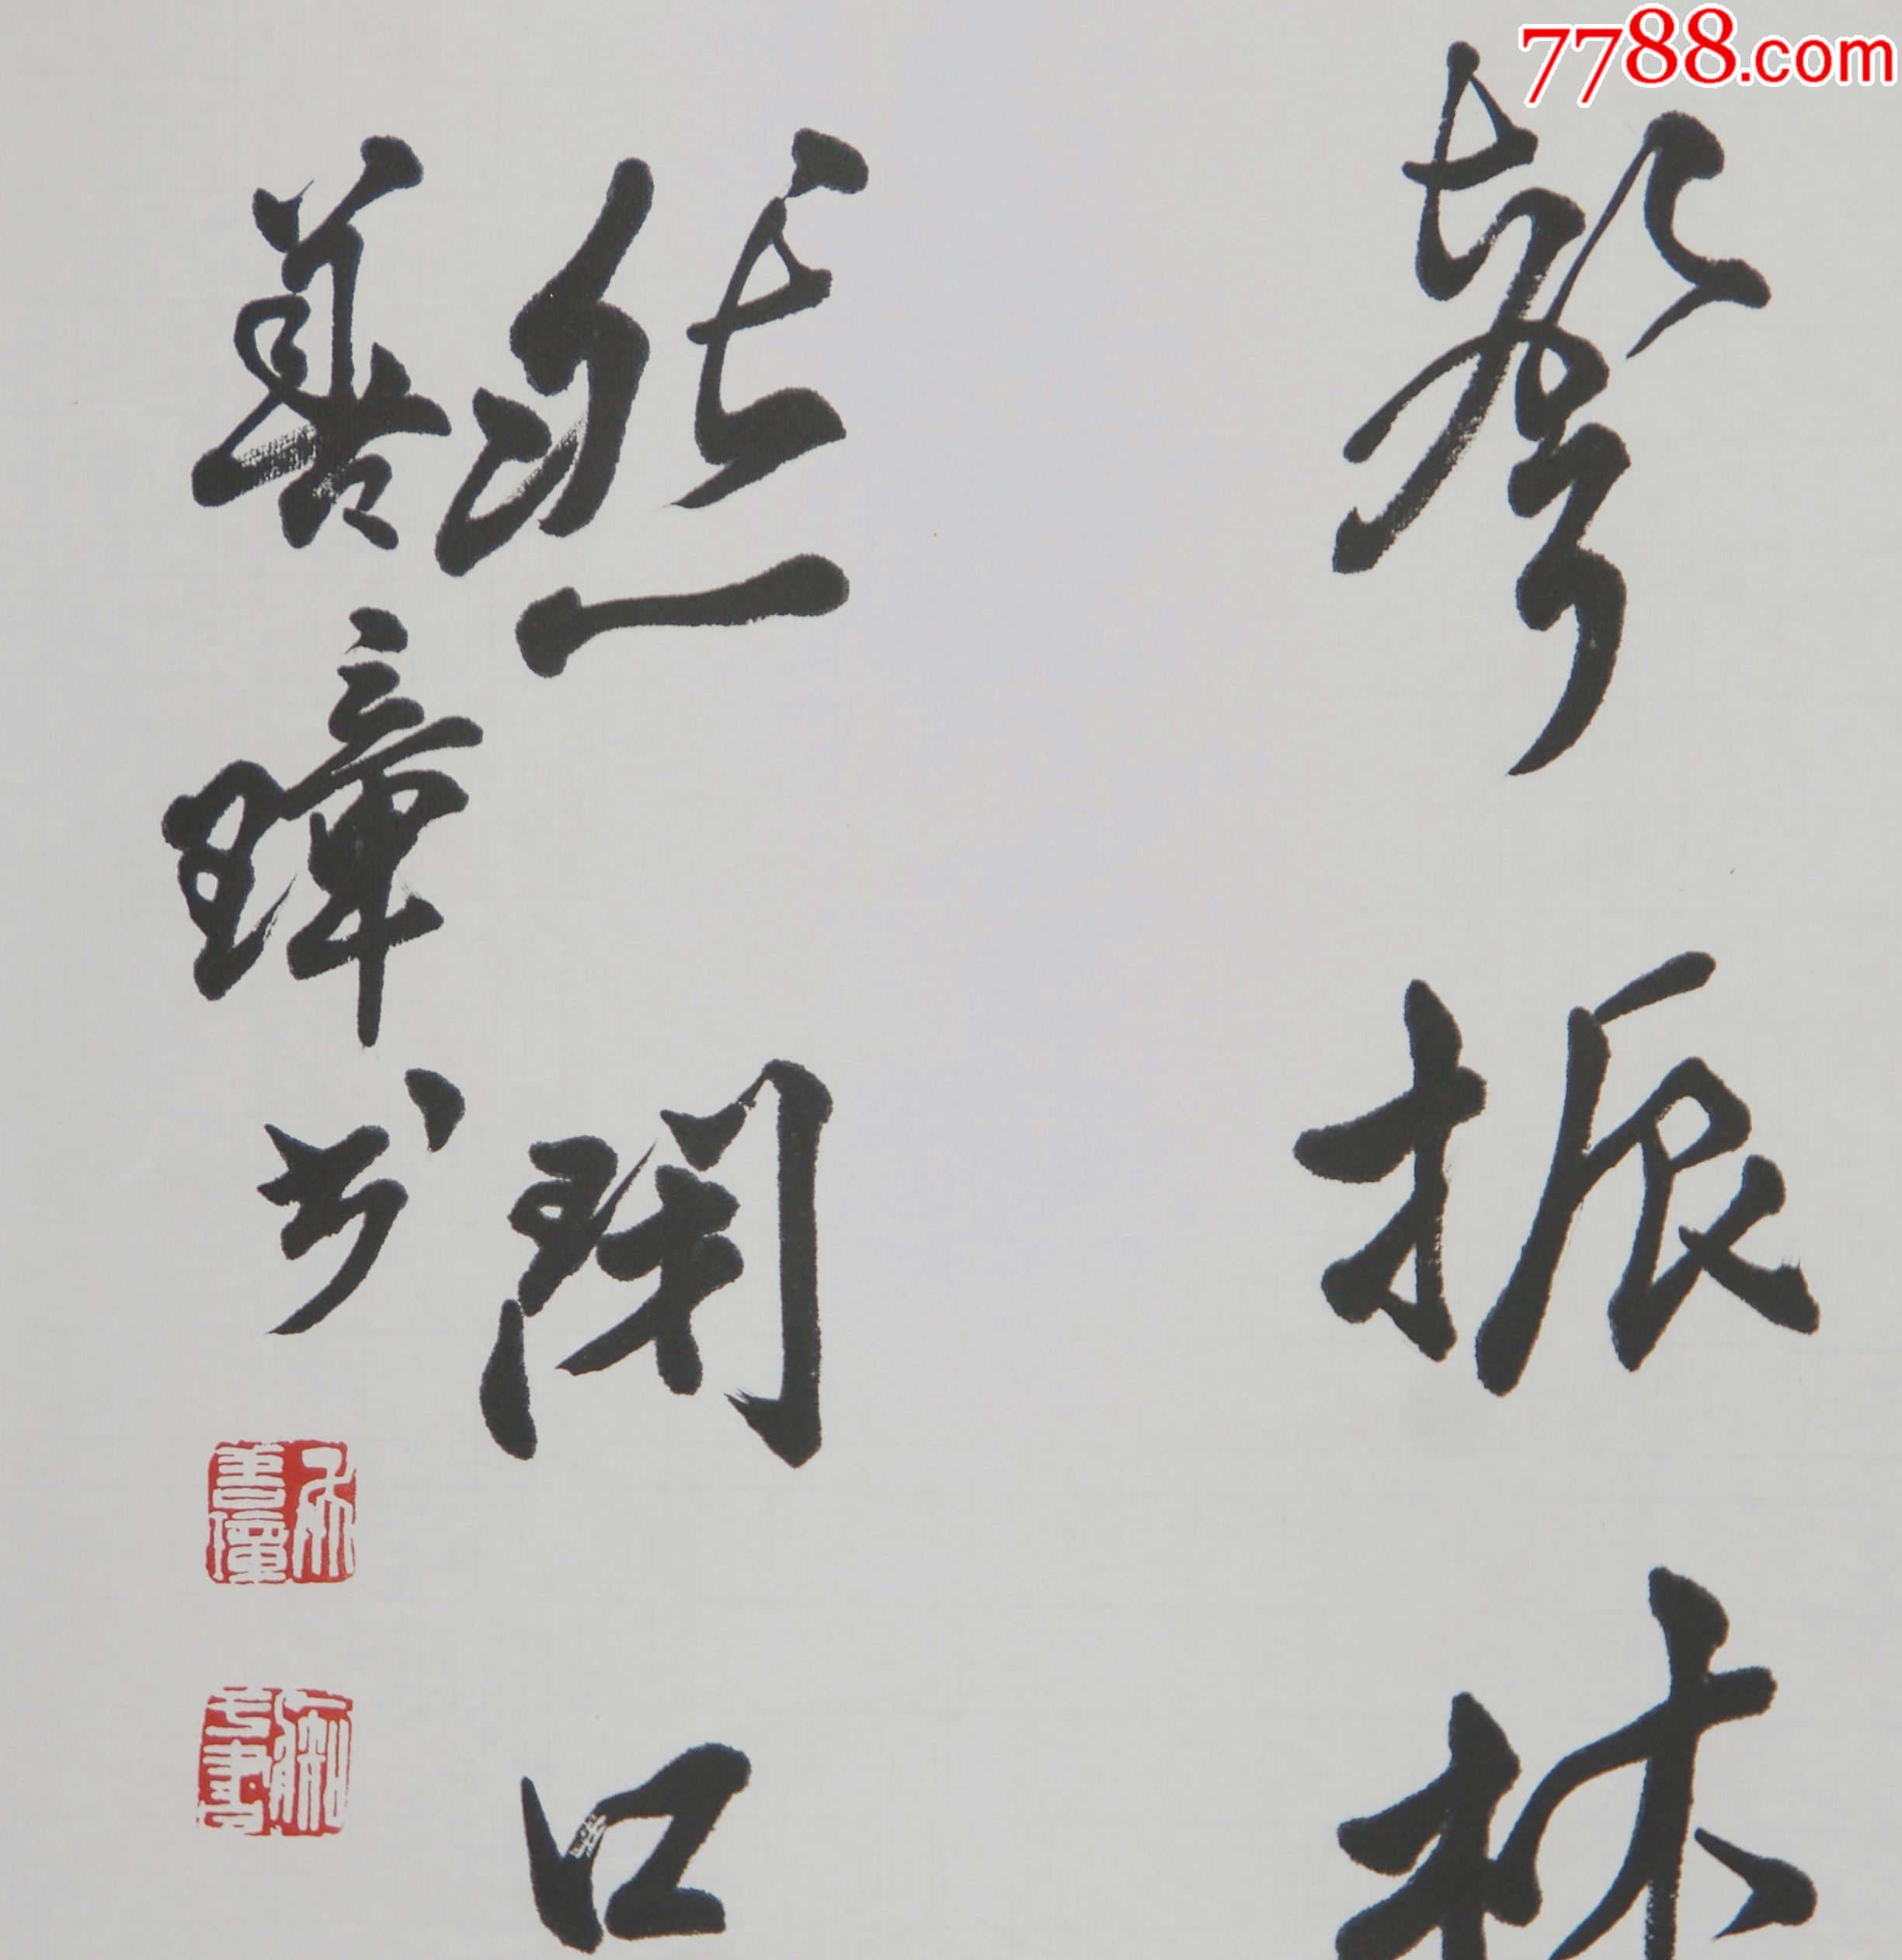 7788.com
聲振林
然閉口
善璋书